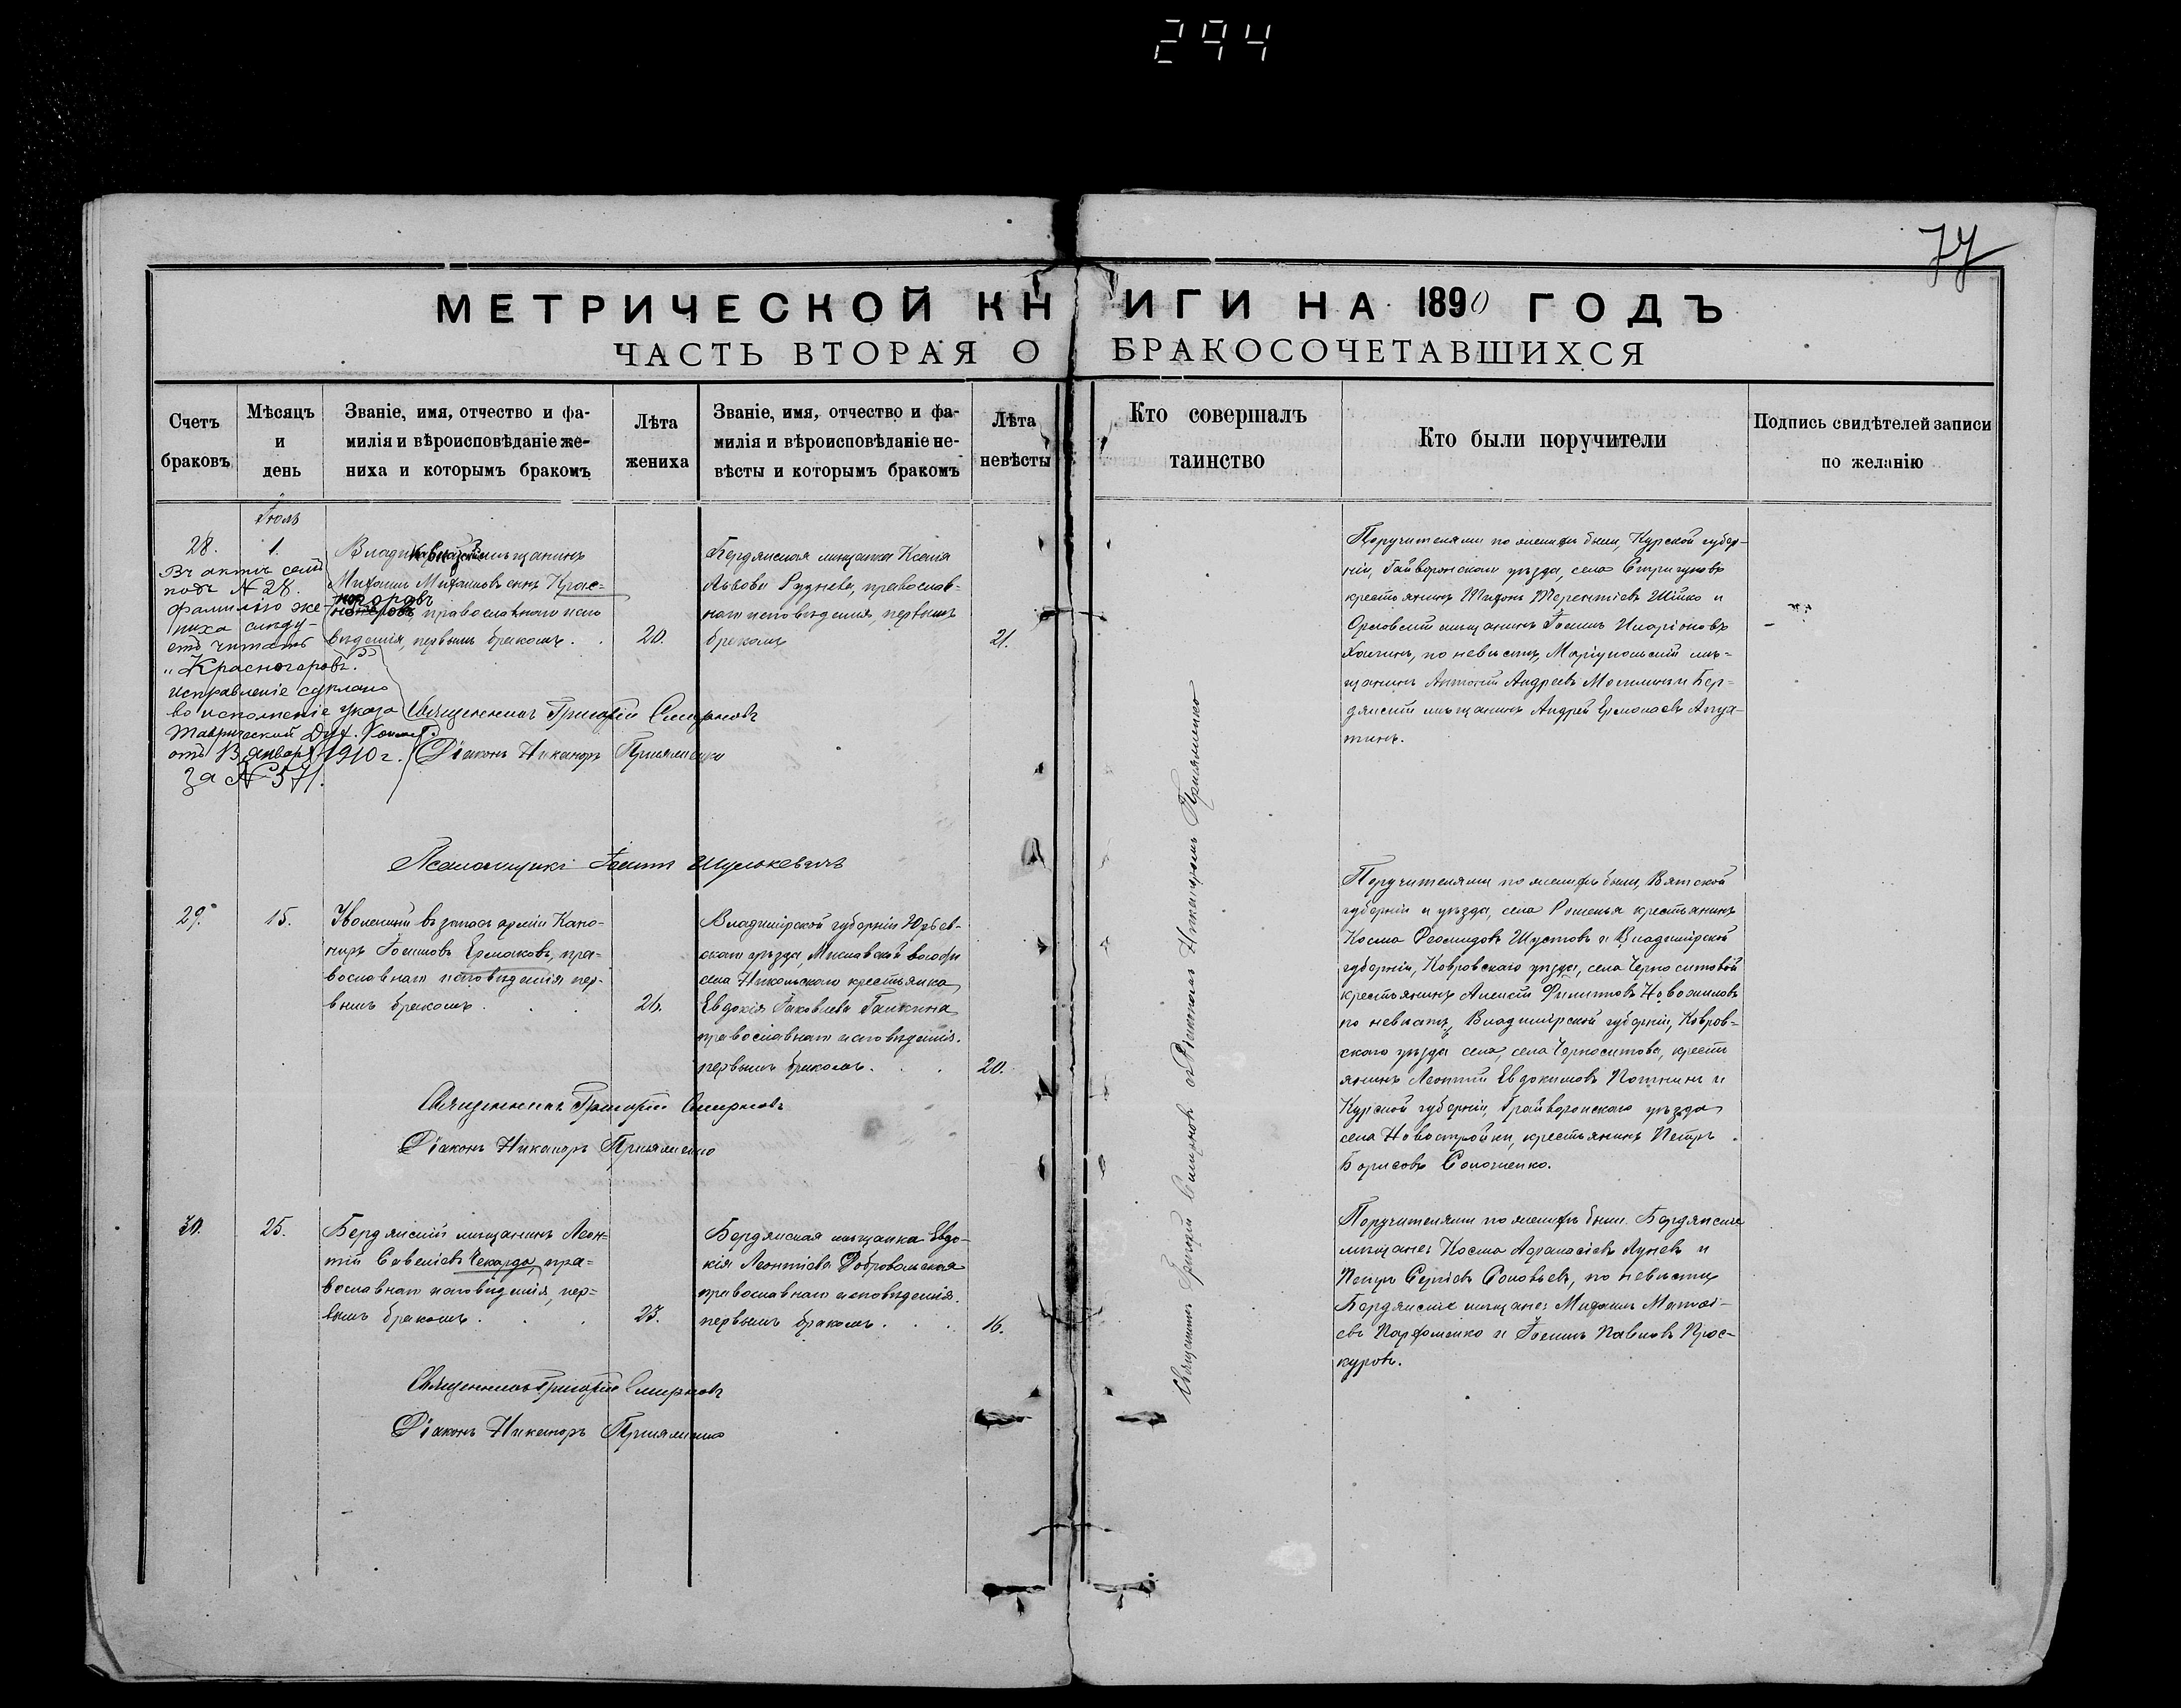 294
77
МЕТРИЧЕСКОЙ КНИГИ НА 1890 ГОДЪ
ЧАСТЬ ВТОРАЯ О БРАКОСОЧЕТАВШИХСЯ
Счетъ
браковъ
Мѣсяцъ
и
день
Званіе, имя, отчество и фа-
милія и вѣроисповѣданіе же-
ниха и которымъ бракомъ
Лѣта
жениха
Званіе, имя, отчество и фа-
милія и вѣроисповѣданіе не-
вѣсты и которымъ бракомъ
Лѣта
невѣсты
Кто совершалъ
таинство
Кто были поручители
Подпись свидѣтелей записи
по желанію
Іюль
28.
1.
Въ актѣ семъ
подъ № 28.
фамилію же-
ниха слѣду-
етъ читать
„Красногоровъ".
исправленіе сдѣлано
во исполненіе указа
Таврической Дух. Консист.
отъ 13 января 1910 г.
за № 571.
мѣщанинъ
Михаилъ Михаиловъ сынъ Крас-
ногоровъ, православнаго испо
вѣданія, первымъ бракомъ.
20.
Бердянская мѣщанка Ксенія
Львова Руднева, православ-
наго исповѣданія, первымъ
бракомъ
21.
Священникъ Григорій Смирновъ
Діаконъ Никаноръ
Псаломщикъ Іоаннъ Шулькевичъ
Поручителями по женихѣ были, Курской губер-
ніи, Гайворонскаго уѣзда, села Стригуновъ
крестьянинъ Тихонъ Терентіевъ Шійко и
Орловскій мѣщанинъ Іоаннъ Иларіоновъ
по невѣстѣ, Маріупольскій мѣ-
щанинъ Антоній Андреевъ и Бер-
дянскій мѣщанинъ Андрей Ермолаевъ Апуа-
тинъ.
29.
15.
Уволенный въ запасъ арміи Кано-
ниръ Іоакимовъ Ермаковъ, пра-
вославнаго исповѣданія пер-
вымъ бракомъ
26.
Владимірской губерніи Юрьев-
скаго уѣзда, волости
села Никольскаго крестьянка
Евдокія Іаковлева Галкина
православнаго исповѣданія.
первымъ бракомъ.
20.
Священникъ Григорій Смирновъ
Діаконъ Никаноръ
Поручителями по женихѣ были, Вятской
губерніи и уѣзда, села крестьянинъ
Косма Шустовъ и Владимірской
губерніи, Ковровскаго уѣзда, села
крестьянинъ Алексѣй Филипповъ Новожиловъ
по невѣстѣ, Владимірской губерніи, Ковров-
скаго уѣзда села, села крестья
янинъ Леонтій Евдокимовъ и
Курской губерніи, Грайворонскаго уѣзда
села Новостройки, крестьянинъ Петръ
Борисовъ Солошенко.
30.
25.
Бердянскій мѣщанинъ Леон-
тій Савеліевъ Чекарда, пра-
вославнаго исповѣданія, пер-
вымъ бракомъ.
23.
Бердянская мѣщанка Евдо-
кія Леонтіева Добровольская
православнаго исповѣданія.
первымъ бракомъ.
16.
Священникъ Григорій Смирновъ
Діаконъ Никаноръ
Поручителями по женихѣ были Бердянскіе
мѣщане: Косма Афанасіевъ Луневъ и
Петръ Сергіевъ Соловьевъ, по невѣстѣ
Бердянскіе мѣщане: Михаилъ Матвѣ-
евъ Парфоменко и Іоаннъ Павловъ Прос-
куровъ.
Священникъ Григорій Смирновъ съ Діакономъ Никаноромъ